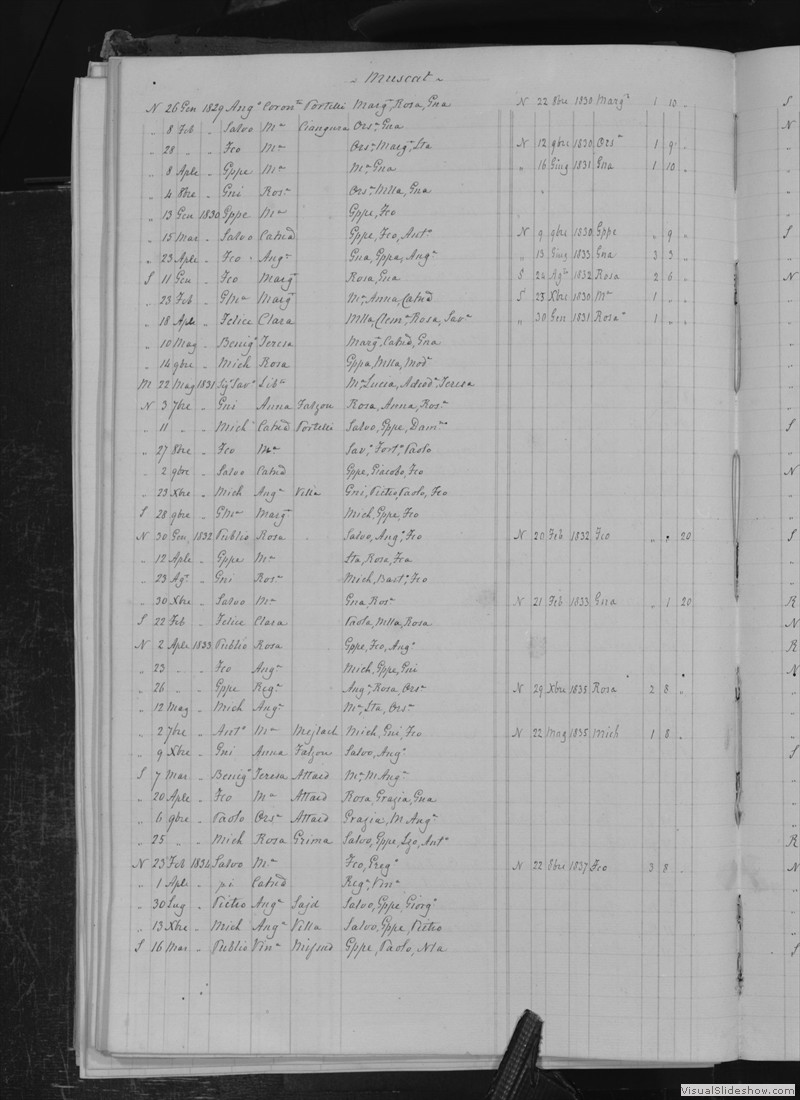 - Muscat -
N 26 Gen 1829 Angº Coronª Portelli Margª, Rosa, Gna N 22 8bre 1830 Margª 1 10 "
" 8 Feb " Salvo Mª Ciangura Orsª, Gna
" 28 " " Fco Mª Orsª, Margª, Sta N 12 9bre 1830 Orsª 1 9 "
" 8 Aple " Gppe Mª Mª, Gna " 16 Giug 1831 Gna 1 10 "
" 4 8bre " Gni Rosª Orsª, Mlla, Gna "
" 13 Gen 1830 Gppe Mª Gppe, Fco
" 15 Mar " Salvo Catnª Gppe, Fco, Antº N 9 9bre 1830 Gppe " 9 "
" 23 Aple " Fco Angª Gna, Gppa, Angª " 13 Giug 1833 Gna 3 3 "
S 11 Gen " Fco Margª Rosa, Gna S 24 Agº 1832 Rosa 2 6 "
" 23 Feb " GMª Margª Mª, Anna, Catnª S 23 Xbre 1830 Mª 1 " "
" 18 Aple " Felice Clara Mlla, Clemª, Rosa, Savª " 30 Gen 1831 Rosª 1 " "
" 10 Mag " Benigº Teresa Margª, Catnª, Gna
" 14 9bre " Mich Rosa Gppa, Mlla, Modª
M 22 Mag 1831 Savº Libª Mª, Lucia, Teresa
N 3 7bre " Gni Anna Falzon Rosa, Anna, Rosª
" 11 " " Mich Catnª Portelli Salvo, Gppe, Damº
" 27 8bre " Fco Mª Savº, Fortº, Paolo
" 2 9bre " Salvo Catnª Gppe, Giacobo, Fco
" 23 Xbre " Mich Angª Vella Gni, Pietro, Paolo, Fco
S 28 9bre " GMª Margª Mich, Gppe, Fco
N 30 Gen 1832 Publio Rosa Salvo, Angº, Fco N 20 Feb 1832 Fco " " 20
" 12 Aple " Gppe Mª Sta, Rosa, Fca
" 23 Agº " Gni Rosª Mich, Bastº, Fco
" 30 Xbre " Salvo Mª Gna, Rosª N 21 Feb 1833 Gna " 1 20
S 22 Feb " Felice Clara Paola, Mlla, Rosa
N 2 Aple 1833 Publio Rosa Gppe, Fco, Angº
" 23 " " Fco Angª Mich, Gppe, Gni
" 26 " " Gppe Regª Angª, Rosa, Orsª N 29 Xbre 1835 Rosa 2 8 "
" 12 Mag " Mich Angª Mª, Sta, Orsª
" 2 7bre " Antº Mª Mejlach Mich, Gni, Fco N 22 Mag 1835 Mich 1 8 "
" 9 Xbre " Gni Anna Falzon Salvo, Angº
S 7 Mar " Benigº Teresa Attard Mª, M Angª
" 20 Aple " Fco Mª Attard Rosa, Grazia, Gna
" 6 9bre " Paolo Orsª Attard Grazia, M Angª
" 25 " " Mich Rosa Grima Salvo, Gppe, Lzo, Antº
N 23 Feb 1834 Salvo Mª Fco, Gregº N 22 8bre 1837 Fco 3 8 "
" 1 Aple " Catnª Regª, Vinª
" 30 Lug " Pietro Angª Sajd Salvo, Gppe, Giorgº
" 13 Xbre " Mich Angª Villa Salvo, Gppe, Pietro
S 16 Mar " Publio Vinª Mifsud Gppe, Paolo, Nla
VisualSlideshow.com